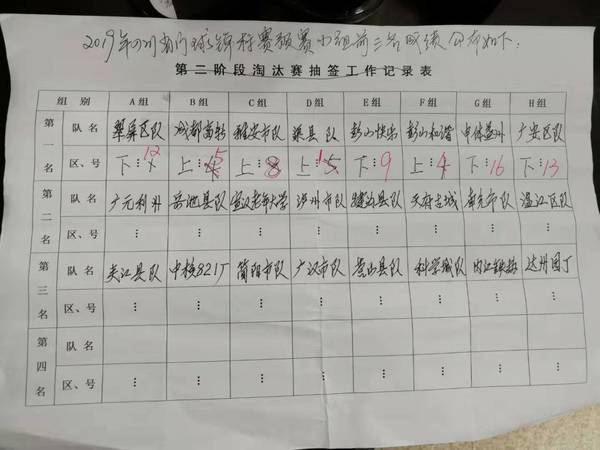 2019年四川省门球锦标赛预赛小组前三名成绩公布如下:
第二阶段淘汰赛抽签工作记录表
组 别 A组 B组 C组 D组 E组 F组 G组 H组
第一名 队名 翠屏区队 成都高新 雅安市队 渠县队 彭山快乐 彭山和谐 中体益州 广安区队
区、号 下:12 上:5 上:8 上:1 下:9 上:4 下:16 下:13
第二名 队名 广元利州 岳池县队 宣汉老年大学 泸州市队 天府古城 南充市队 温江区队
区、号 ⋮ ⋮ ⋮ ⋮ ⋮ ⋮ ⋮ ⋮
第三名 队名 夹江县队 中核821厂 简阳市队 广汉市队 营山县队 科学城队 内江 达州园丁
区、号 ⋮ ⋮ ⋮ ⋮ ⋮ ⋮ ⋮ ⋮
第四名 队名
区、号 ⋮ ⋮ ⋮ ⋮ ⋮ ⋮ ⋮ ⋮